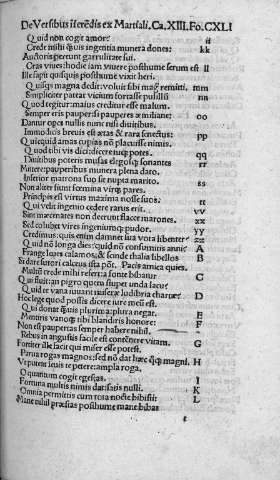 De Versibus iserẽdis ex Martiali. Ca. XIII. Fo. CXLI
Quid non cogit amor? ii
Crede mihi quis ingentia munera dones: kk
Auctoris pereunt garrulitate sui.
Oras viues: hodie iam viuere posthume serum est ll
Ille sapit quisquis posthume vixit heri.
Quisquis magna dedit: voluit sibi magna remitti. mm
Simpliciter pateat vicium fortasse pusilli nn
Quod tegitur: maius creditur esse malum.
Semper eris pauper si pauper es æmiliane: oo
Dantur opes nullis nunc nisi diuitibus.
Immodicis breuis est ætas & rara senectus: pp
Quicquid amas cupias non placuisse nimis.
Quod sibi vis dici: dicere quoq potes. qq
Diuitibus poteris musas elegosq sonantes rr
Mittere: pauperibus munera plena daro.
Inferior matrona suo sit nupta marito. ss
Non aliter fiunt fœmina virq pares.
Principis est virtus maxima nosse suos. tt
Qui velit ingenio cedere rarus erit. vv
Sint mæcenates non deerunt flacce marones. xx
Sed cohibet vires ingeniumq pudor. yy
Credimus: quis enim damnet sua vota libenter zz
Quid non longa dies: quid nõ consumitis anni: A
Frange leues calamos: & scinde thalia libellos B
Si dare sutori calceus ista põt. Pacis amica quies.
Multũ crede mihi refert: a fonte bibatur C
Qui fluit: an pigro quota stupet unda lacu:
Quid te vana iuuant: miseræ ludibria chartæ: D
Hoc lege quod possis dicere iure meũ est.
Qui donat quæuis plurima: plura negat. E
Mentiris vanoq tibi blandiris honore: F
Non est paupertas semper habere nihil.
Rebus in angustis facile est contẽnere vitam. G
Fortiter ille facit qui miser esse potest.
Parua rogas magnos: sed nõ dat hæc quoq magni. H
Ut pudeat leuius te petere: ampla roga.
O quantum cogit egestas. I
Fortuna multis nimis dat: satis nulli. K
Omnia permittis cum tota nocte bibisti: L
Mane nihil præstas posthume mane bibas
t